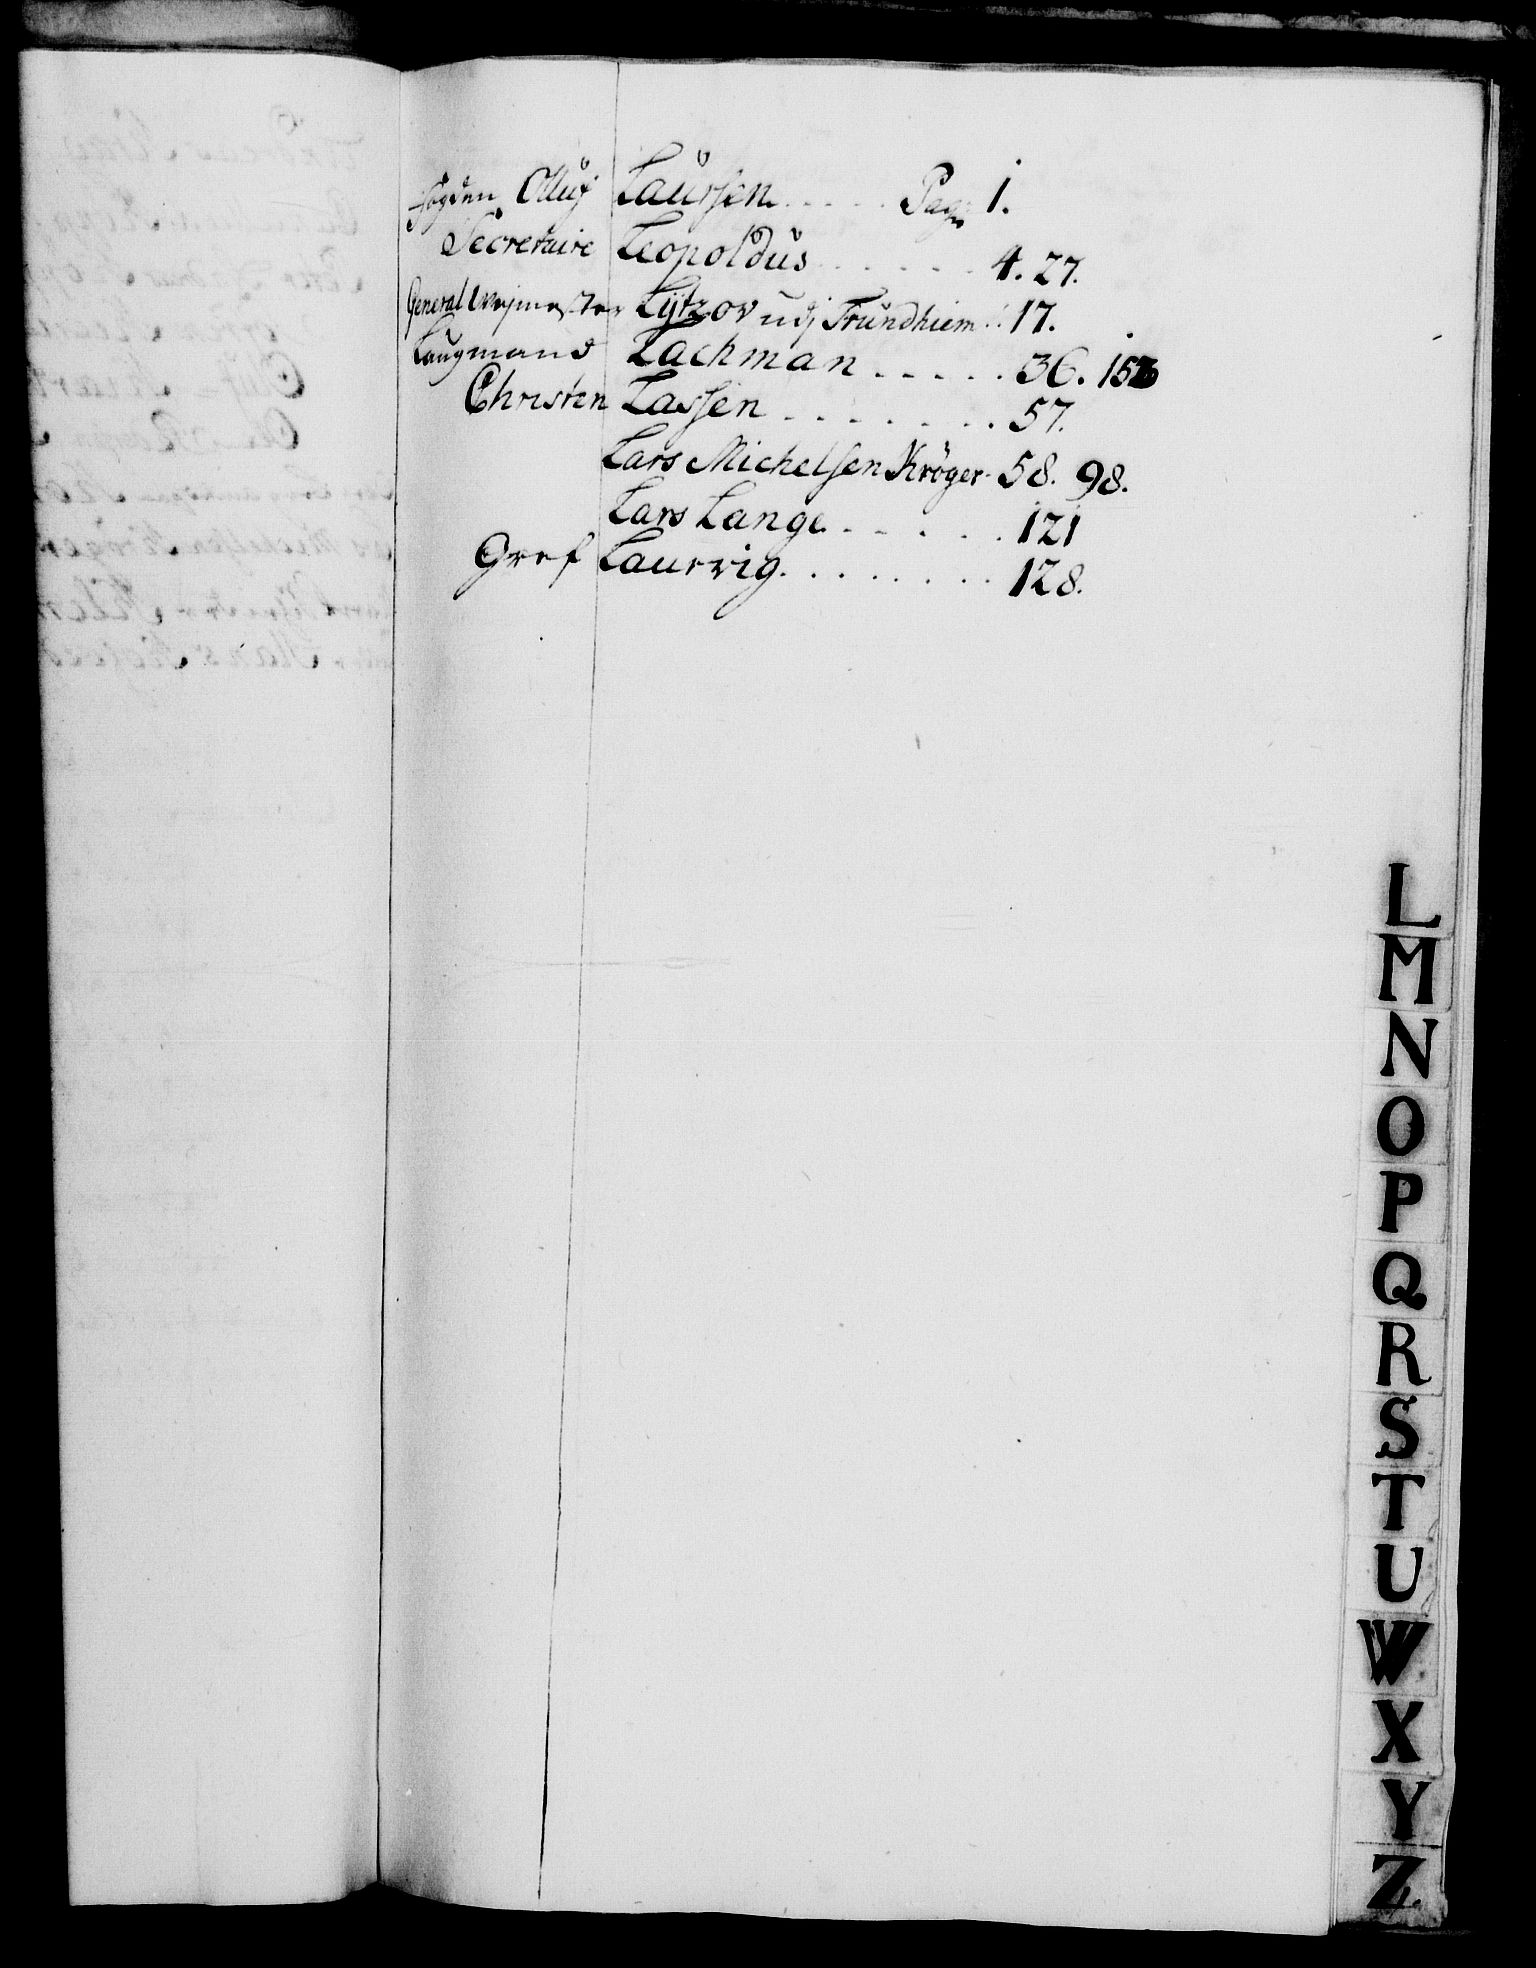 fogden Olluf Laursen ..... Pag: 1.
Secretaire Leopoldus ...... 4. 27.
General Vejmester Lytzov udj Trundhiem .. 17.
Laugmand Lachman ..... 36. 152
Christen Lassen ....... 57.
Lars Michelsen Krøger. 58. 98.
Lars Lange ..... 121
Gref Laurvig ........ 128.
L
M
N
O
P
Q
R
S
T
U
W
X
Y
Z